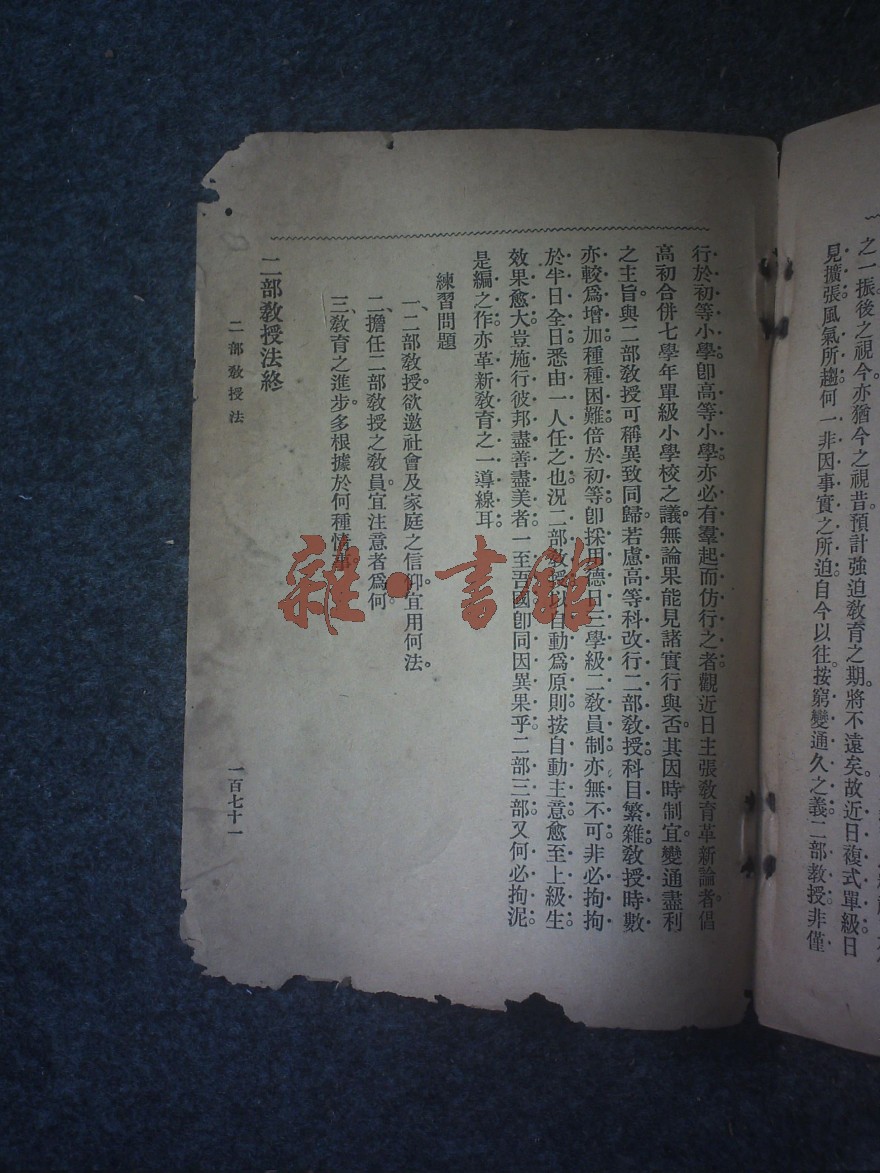 之一振後之視今亦猶今之視昔預計強迫教育之期將不遠矣故近日複式單級日
見擴張風氣所趨何一非因事實之所迫自今以往按窮變通久之義二部教授非僅
行於初等小學卽高等小學亦必有羣起而仿行之者觀近日主張教育革新論者倡
高初合併七學年單級小學校之議無論果能見諸實行與否其因時制宜變通盡利
之主旨與二部教授可稱異致同歸若慮高等科改行二部教授科目繁雜教授時數
亦較爲增加種種困難倍於初等卽採用德日三學級二教員制亦無不可非必拘拘
於半日全日悉由一人任之也況二部教授以自動爲原則按自動主意愈至上級生
效果愈大豈施行彼邦盡善盡美者一至吾國卽同因異果乎二部三部又何必拘泥
是編之作亦革新教育之一導線耳
練習問題
一、二部教授欲邀社會及家庭之信仰宜用何法。
二、擔任二部教授之教員宜注意者爲何。
三、教育之進步多根據於何種情事
二部教授法終
二部教授法
一百七十一
雜·書館